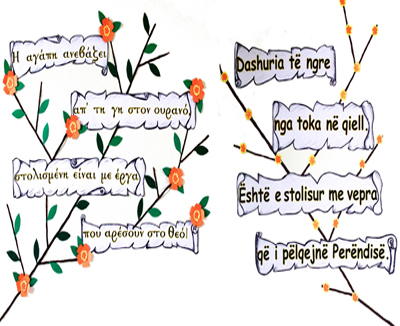 Η αγάπη ανεβάζει
απ' τη γη στον ουρανό,
στολισμένη είναι με έργα
που αρέσουν στο θεό!
Dashuria të ngre
nga toka në qiell,
Është e stolisur me vepra
që i pëlqejnë Perëndisë.